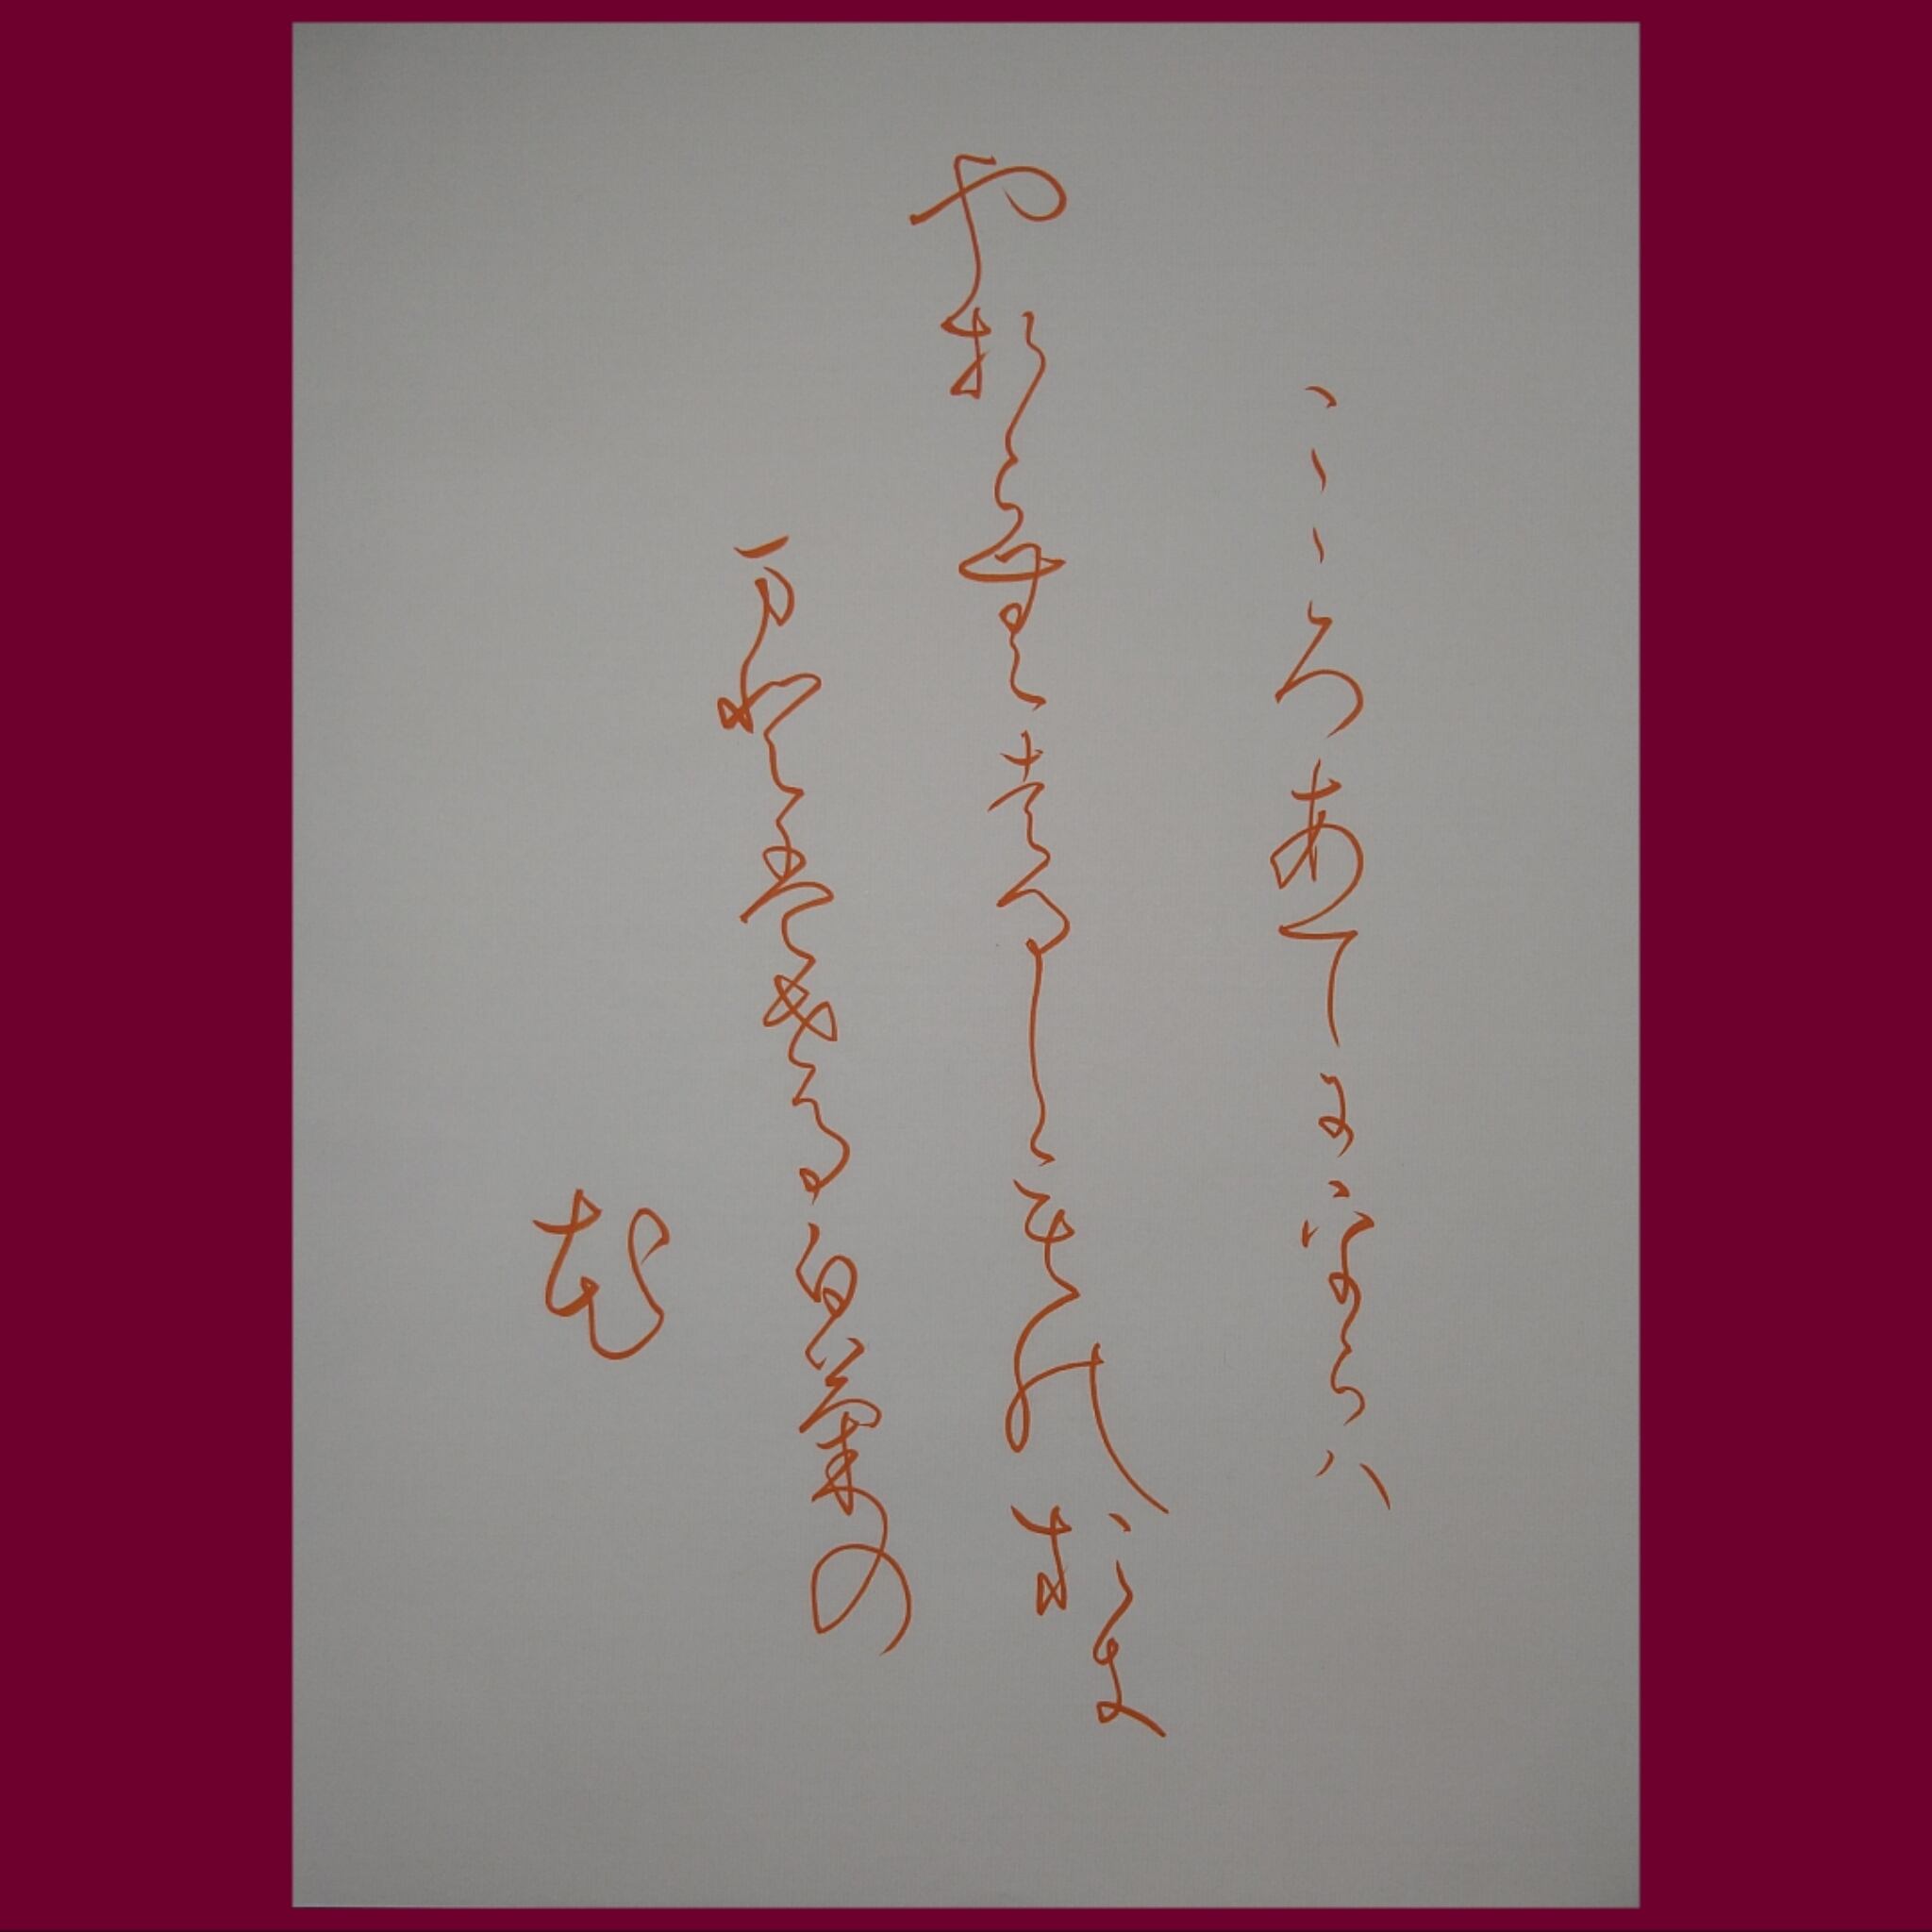 こゝろあてにをらハ
やおらむはつしものおき
まどはせる白菊の
花